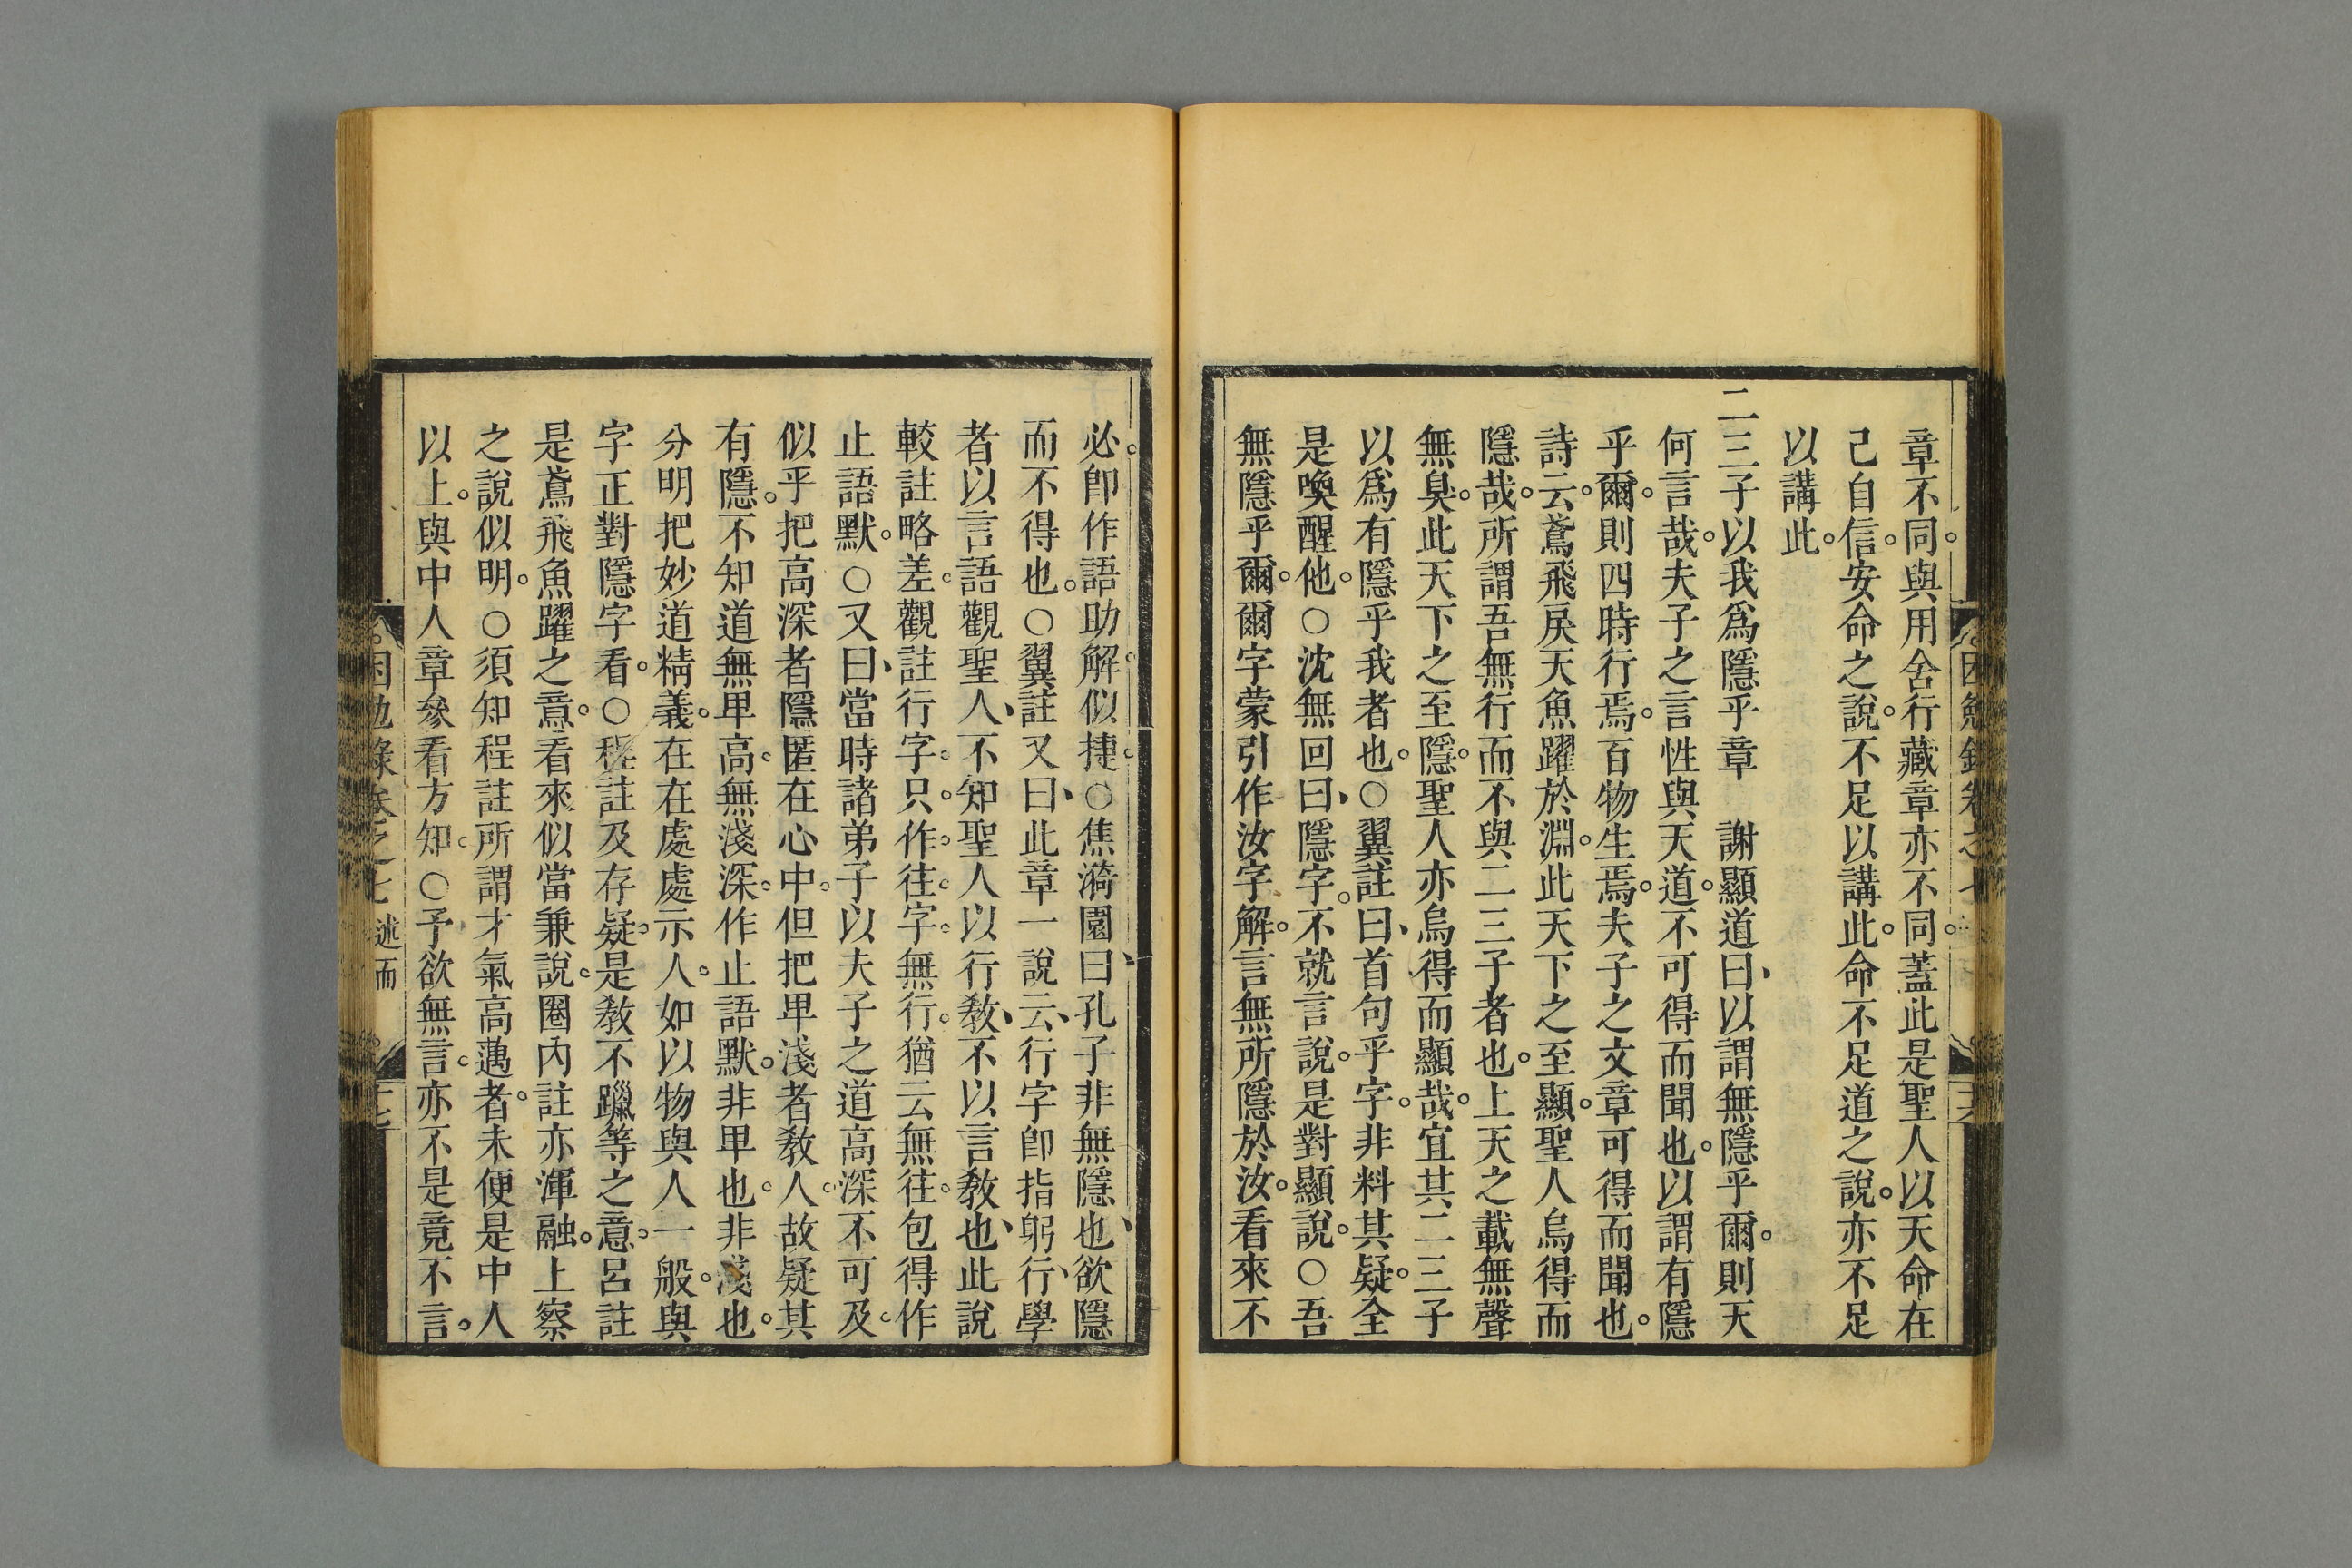 章不同。與用舍行藏章亦不同。蓋此是聖人以天命在
己自信。安命之說。不足以講此。命不足道之說。亦不足
以講此。
二三子以我爲隱乎章　謝顯道曰、以謂無隱乎爾。則天
何言哉。夫子之言性與天道。不可得而聞也。以謂有隱
乎爾。則四時行焉。百物生焉。夫子之文章可得而聞也。
詩云。鳶飛戾天魚躍於淵。此天下之至顯。聖人烏得而
隱哉。所謂吾無行而不與二三子者也。上天之載無聲
無臭。此天下之至隱。聖人亦烏得而顯哉。宜其二三子
以爲有隱乎我者也。○翼註曰、首句乎字。非料其疑。全
是喚醒他。○沈無回曰、隱字。不就言說。是對顯說。○吾
無隱乎爾。爾字蒙引作汝字解。言無所隱於汝。看來不
必。卽作語助解。似捷。○焦漪園曰、孔子非無隱也、欲隱
而不得也。○翼註又曰、此章一說云、行字卽指躬行、學
者以言語觀聖人、不知聖人以行敎、不以言敎也、此說
較註略差。觀註行字。只。作。往。字。無行。猶云無往。包得作
止語默。○又曰、當時諸弟子以夫子之道高深不可及。
似乎把高深者隱匿在心中。但把卑淺者敎人。故疑其
有隱。不知道無卑高。無淺深。作止語默。非卑也。非淺也。
分明把妙道精義。在在處處示人。如以物與人一般。與
字正對隱字看。○程註及存疑。是敎不躐等之意。呂註
是鳶飛魚躍之意。看來似當兼說。圈內註亦渾融。上察
之說似明。○須知程註所謂才氣高邁者。未便是中人
以上。與中人章參看方知。○予欲無言。亦不是竟不言。
困勉錄卷之七
述而
十七